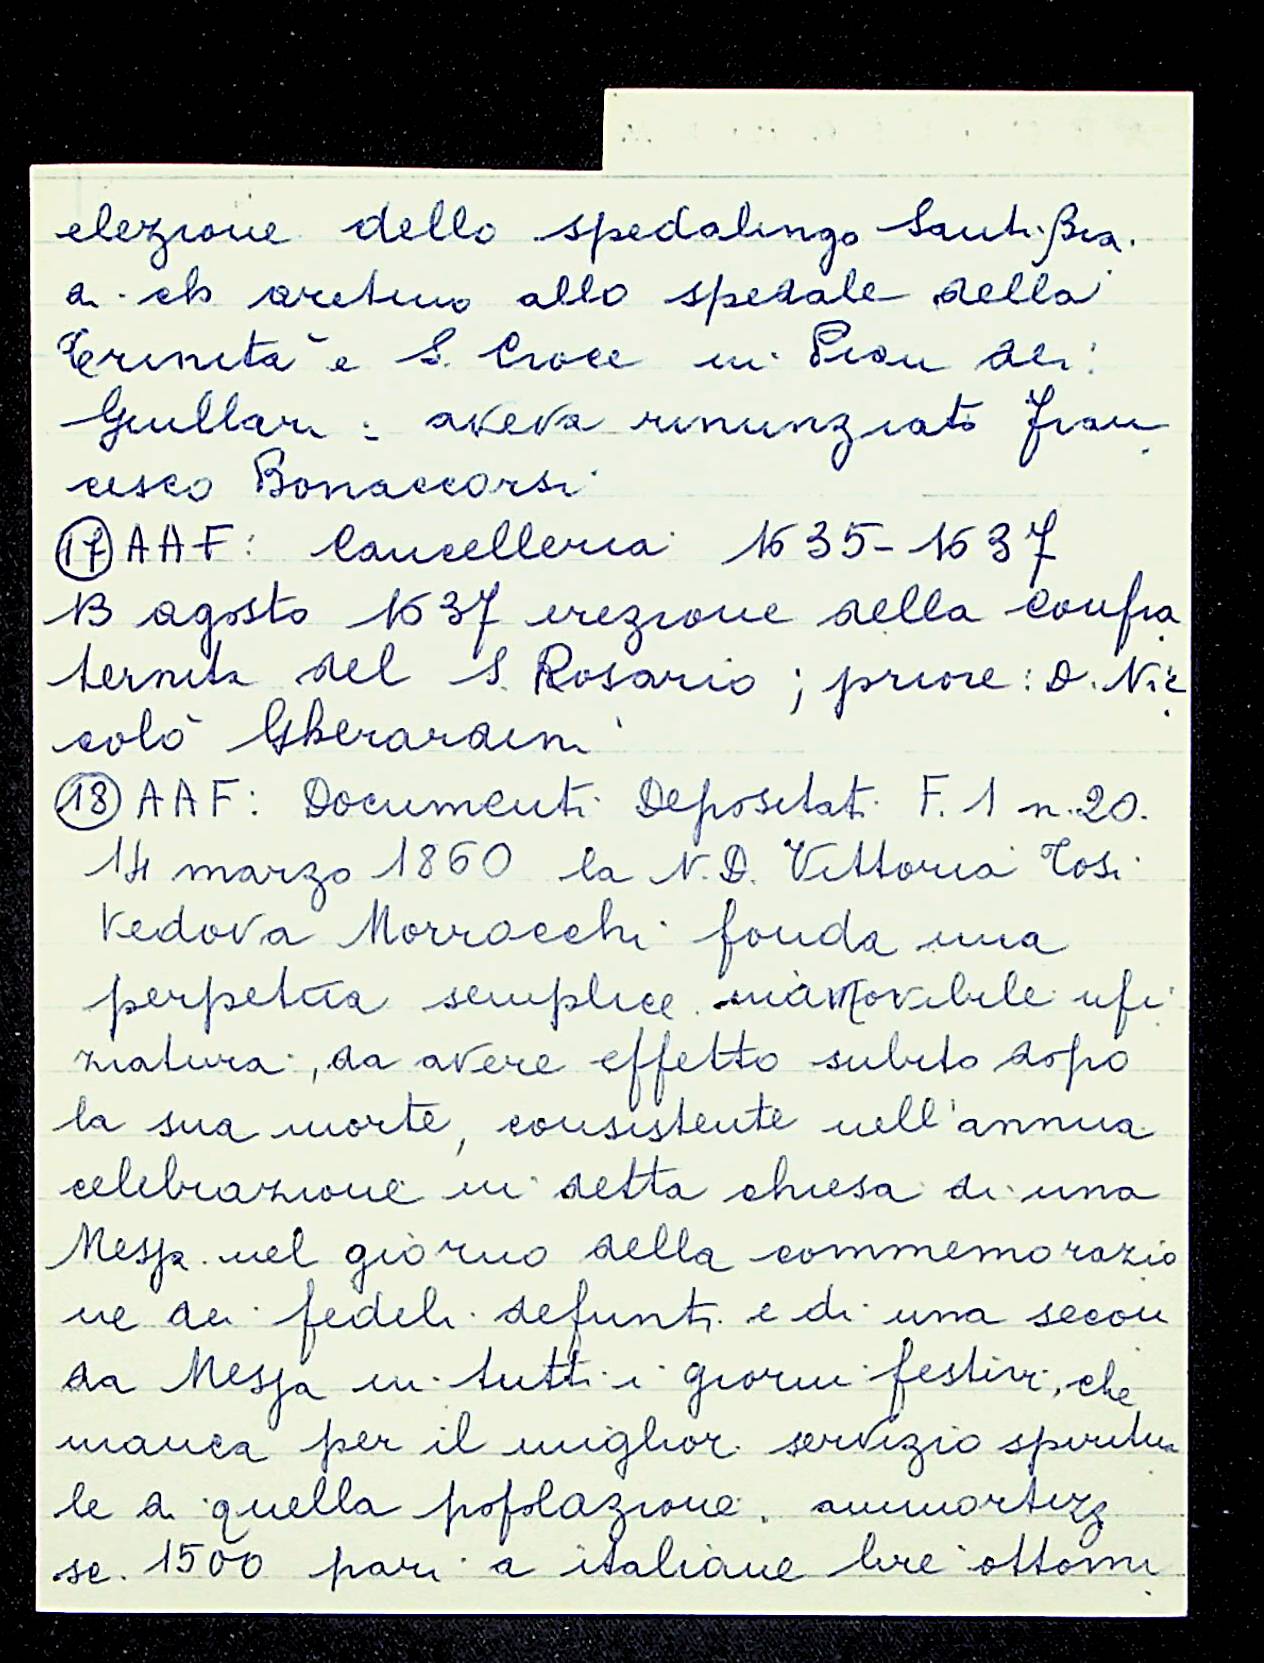 elezione dello spedalingo Santi Bia.
di ch aretino allo spedale della
Trinità e S. Croce in Pian dei
Giullari : aveva rinunziato Fran
cesco Bonaccorsi
(17) AAF: Cancelleria 1635-1637
13 agosto 1637 erezione della confra
ternita del S. Rosario ; priore : D. Nic
colò Gherardini
(18) AAF: Documenti Depositati F. 1 n. 20.
14 marzo 1860 la N.D. Vittoria Tosi
vedova Morrocchi fonda una
perpetua semplice inamovibile ufi
ziatura, da avere effetto subito dopo
la sua morte, consistente nell'annua
celebrazione in detta chiesa di una
Messa nel giorno della commemorazio
ne dei fedeli defunti e di una secon
da Messa in tutti i giorni festivi, che
manca per il miglior servizio spiritua
le di quella popolazione.
sc. 1500 pari a italiane lire ottomi